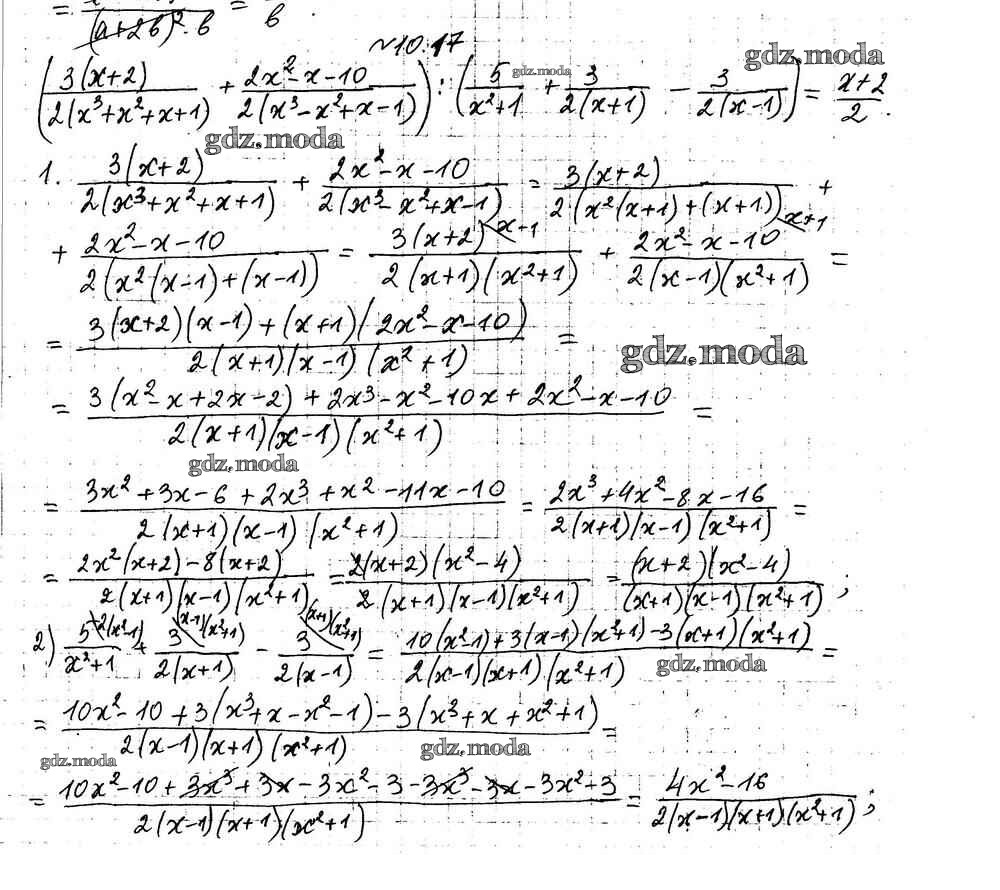 = (a+2b)²·b = b .
№10.17
(3(x+2)/2(x³+x²+x+1) + 2x²-x-10/2(x³-x²+x-1)) : (5/x²+1 + 3/2(x+1) - 3/2(x-1)) = x+2/2.
gdz.moda
gdz.moda
gdz.moda
1. 3(x+2)/2(x³+x²+x+1) + 2x²-x-10/2(x³-x²+x-1) = 3(x+2)/2(x²(x+1)+(x+1)) +
+ 2x²-x-10/2(x²(x-1)+(x-1)) = 3(x+2) \x-1/2(x+1)(x²+1) + 2x²-x-10 \x+1/2(x-1)(x²+1) =
= 3(x+2)(x-1)+(x+1)(2x²-x-10)/2(x+1)(x-1)(x²+1) =
gdz.moda
= 3(x²-x+2x-2)+2x³-x²-10x+2x²-x-10/2(x+1)(x-1)(x²+1) =
gdz.moda
= 3x²+3x-6+2x³+x²-11x-10/2(x+1)(x-1)(x²+1) = 2x³+4x²-8x-16/2(x+1)(x-1)(x²+1) =
= 2x²(x+2)-8(x+2)/2(x+1)(x-1)(x²+1) = 2(x+2)(x²-4)/2(x+1)(x-1)(x²+1) = (x+2)(x²-4)/(x+1)(x-1)(x²+1) ;
2) 5 \2(x²-1)/x²+1 + 3 \(x-1)(x²+1)/2(x+1) - 3 \(x+1)(x²+1)/2(x-1) = 10(x²-1)+3(x-1)(x²+1)-3(x+1)(x²+1)/2(x-1)(x+1)(x²+1) =
gdz.moda
= 10x²-10+3(x³+x-x²-1)-3(x³+x+x²+1)/2(x-1)(x+1)(x²+1) =
gdz.moda
gdz.moda
= 10x²-10+3x³+3x-3x²-3-3x³-3x-3x²+3/2(x-1)(x+1)(x²+1) = 4x²-16/2(x-1)(x+1)(x²+1) ;